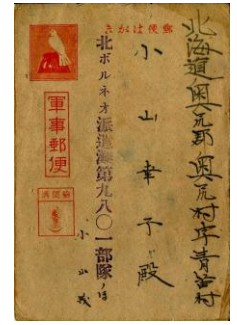 郵便はがき
北海道奥尻郡奥尻村字青苗村
小山幸子殿
軍事郵便
検閲済
北ボルネオ派遣灘第九八〇一部隊ノ
小山義